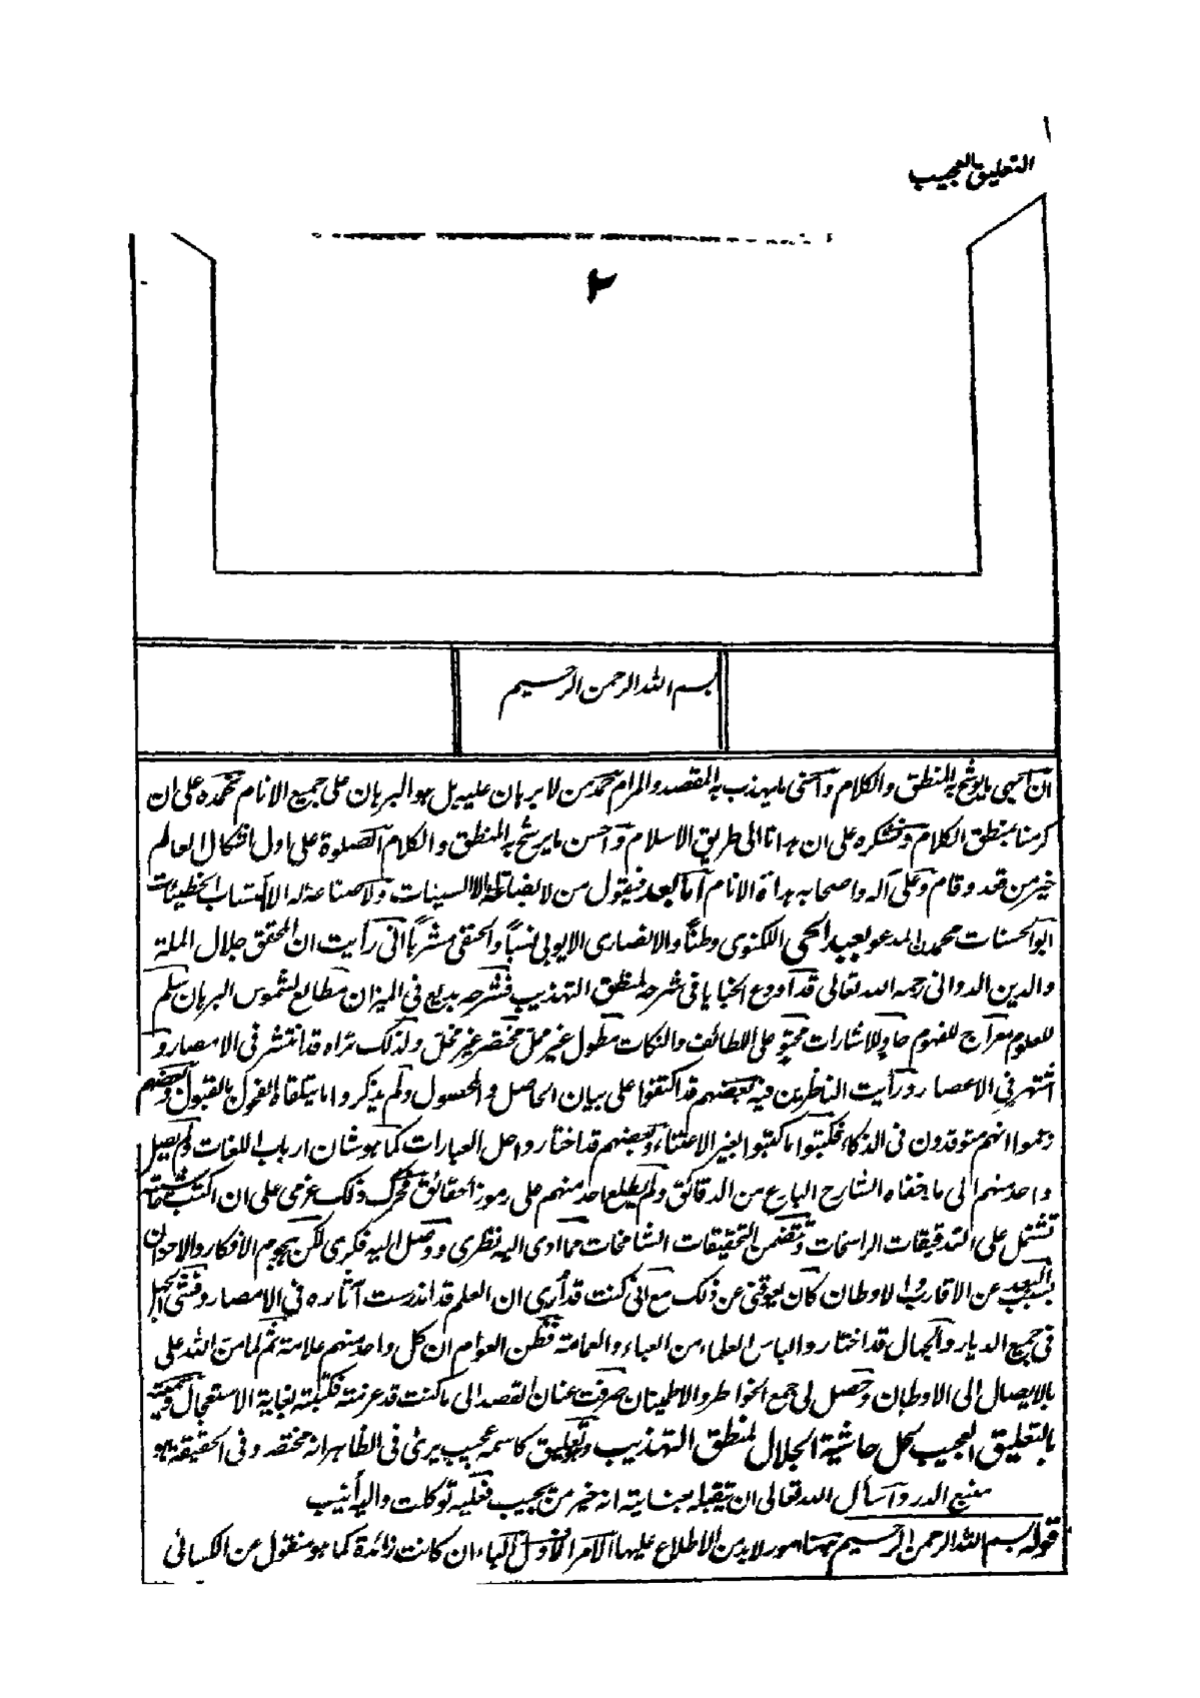 ١
التعليق العجيب
٢
بسم الله الرحمن الرحيم
ان ابهى ما يوشح به المنطق والكلام واسنى ما يهذب به المقصد والمرام حمد من لا برهان عليه بل هو البرهان على جميع الانام نحمده على ان
كرمنا بمنطق الكلام ونشكره على ان هدانا الى طريق الاسلام واحسن ما يرشح به المنطق والكلام الصلوة على اول اشكال العالم
خير من قعد وقام وعلى آله واصحابه هداة الانام اما بعد فيقول من لا بضاعة له الا السيئات ولا صناعة له الا اكتساب الخطيئات
ابو الحسنات محمد المدعو بعبد الحي اللكنوى وطناً والانصارى الايوبى نسباً والحنفى مشرباً انى رأيت ان المحقق جلال الملة
والدين الدوانى رحمه الله تعالى قد اودع الخبايا فى شرحه لمنطق التهذيب فشرحه بديع فى الميزان مطالع لشموس البرهان سلم
للعلوم معراج للفهوم حاو للاشارات محتو على اللطائف والنكات مطول غير ممل مختصر غير مخل ولذلك تراه قد انتشر فى الامصار و
اشتهر فى الاعصار ورأيت الناظرين فيه بعضهم قد اكتفوا على بيان الحاصل والمحصول ولم يذكروا ما يتلقاه الفحول بالقبول وبعضهم
زعموا انهم متوقدون فى الذكاء فكتبوا ما كتبوا بغير الاعتناء وبعضهم قد اختاروا حل العبارات كما هو شان ارباب اللغات لم يصل
واحد منهم الى ما خفاه الشارح البارع من الدقائق ولم يطلع احد منهم على رموز الحقائق فحرك ذلك عزمى على ان اكتب حاشية
تشتمل على التدقيقات الراسخات وتتضمن التحقيقات الشامخات مما ادى اليه نظرى ووصل اليه فكرى لكن هجوم الافكار والاحزان
بسبب البعد عن الاقارب والاوطان كان يعوقنى عن ذلك مع انى كنت قد أرى ان العلم قد اندرست آثاره فى الامصار وفشى الجهل
فى جميع الديار والجهال قد اختاروا لباس العلماء من العباء والعمامة فظن العوام ان كل واحد منهم علامة ثم لما من الله على
بالايصال الى الاوطان وحصل لى جمع الخواطر والاطمينان صرفت عنان القصد الى ما كنت قد عزمته فكتبته بغاية الاستعجال وسميته
بالتعليق العجيب لحل حاشية الجلال لمنطق التهذيب وهو تعليق كاسمه عجيب يرئ فى الظاهر انه مختصر وفى الحقيقة هو
منبع الدرر واسأل الله تعالى ان يتقبله بعنايته انه خير من يجيب فعليه توكلت واليه أنيب
قوله بسم الله الرحمن الرحيم ههنا امور لا بد من الاطلاع عليها الامر الاول الباء ان كانت زائدة كما هو منقول عن الكسائى